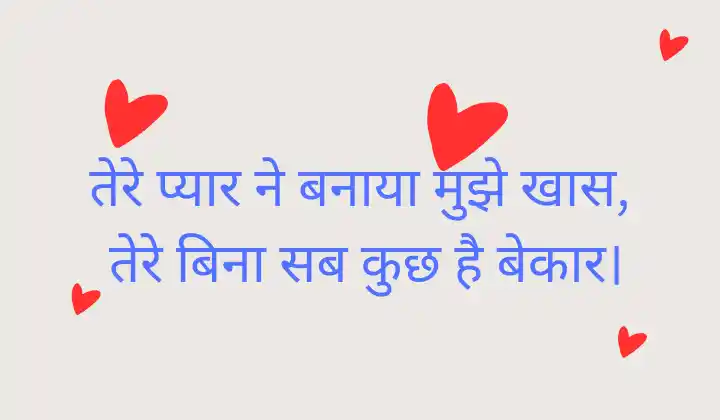 तेरे प्यार ने बनाया मुझे खास,
तेरे बिना सब कुछ है बेकार।